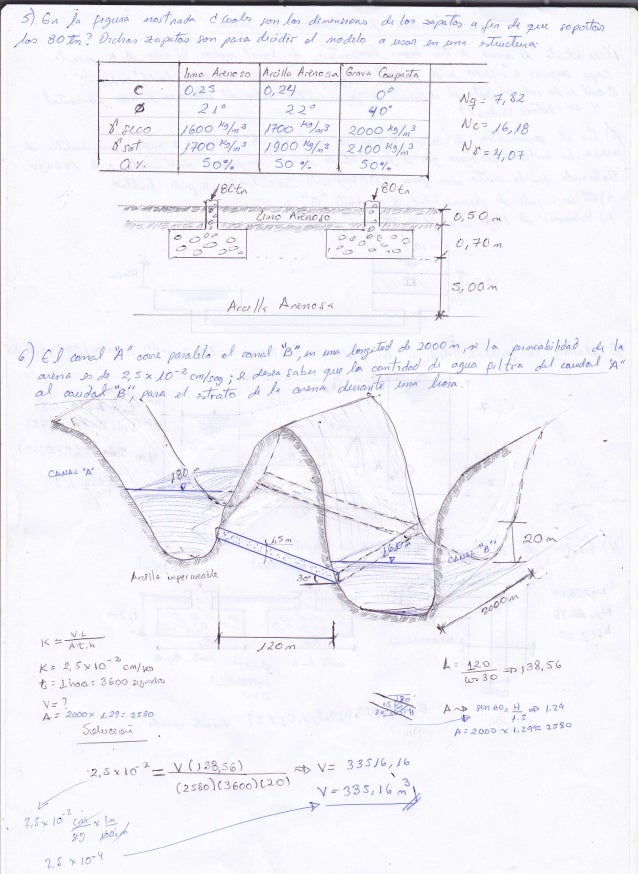 5) En la figura mostrada Cuales son las dimensiones de las zapatas a fin de que soporten
las 80tn? Dichas zapatas son para decidir el modelo a usar en una estructura.
Limo Arenoso Arcilla Arenosa Grava Compacta
C 0,25 0,24 0°
Ø 21° 22° 40°
γ seco 1600 kg/m³ 1700 kg/m³ 2000 kg/m³
γ sat 1700 kg/m³ 1900 kg/m³ 2100 kg/m³
a% 50% 50% 50%
Nq = 7,82
Nc = 16,18
Nγ = 4,07
80tn 80tn
Limo Arenoso
0,50m
0,70m
5,00m
Arcilla Arenosa
6) El canal "A" corre paralelo al canal "B", en una longitud de 2000m, si la permeabilidad de la
arena es de 2,5 x 10⁻² cm/seg; se desea saber que la cantidad de agua filtra del caudal "A"
al caudal "B", para el estrato de la arena durante una hora.
CANAL "A"
180
1,5m
160m
CANAL "B"
20m
Arcilla impermeable
30°
2000m
120m
K = V.L / A.t.h
K = 2,5 x 10⁻² cm/seg
t = 1 hora = 3600 segundos
V = ?
A = 2000 x 1,29 = 2580
Solución
L = 120 / cos 30 => 138,56
A → sen 60 = H / 1.5 => 1.29
A = 2000 x 1.29 = 2580
2,5 x 10⁻² = V(138,56) / (2580)(3600)(20) => V = 33516,16
V = 335,16 m³
2,5 x 10⁻² cm/sg x 1m/100cm
2,5 x 10⁻⁴